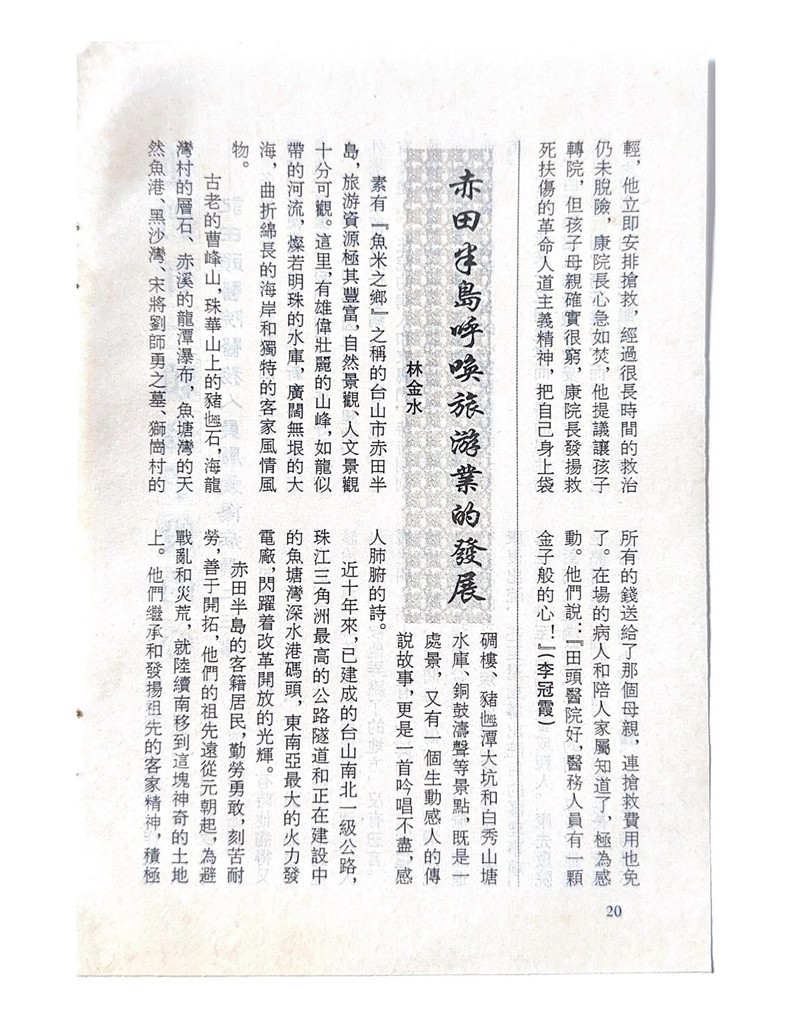 輕，他立即安排搶救，經過很長時間的救治
仍未脫險，康院長心急如焚，他提議讓孩子
轉院，但孩子母親確實很窮，康院長發揚救
死扶傷的革命人道主義精神，把自己身上袋
所有的錢送給了那個母親，連搶救費用也免
了。在場的病人和陪人家屬知道了，極為感
動。他們說：『田頭醫院好，醫務人員有一顆
金子般的心！』（李冠霞）
赤田半島呼喚旅游業的發展
林金水
素有『魚米之鄉』之稱的台山市赤田半
島，旅游資源極其豐富，自然景觀、人文景觀
十分可觀。這里有雄偉壯麗的山峰，如龍似
帶的河流，燦若明珠的水庫，廣闊無垠的大
海，曲折綿長的海岸和獨特的客家風情風
物。
古老的曹峰山，珠華山上的豬乸石，海龍
灣村的層石、赤溪的龍潭瀑布，魚塘灣的天
然魚港、黑沙灣、宋將劉師勇之墓、獅崗村的
碉樓、豬乸潭大坑和白秀山塘
水庫、銅鼓濤聲等景點，既是一
處景，又有一個生動感人的傳
說故事，更是一首吟唱不盡，感
人肺腑的詩。
近十年來，已建成的台山南北一級公路，
珠江三角洲最高的公路隧道和正在建設中
的魚塘灣深水港碼頭，東南亞最大的火力發
電廠，閃躍着改革開放的光輝。
赤田半島的客籍居民，勤勞勇敢，刻苦耐
勞，善于開拓，他們的祖先遠從元朝起，為避
戰亂和災荒，就陸續南移到這塊神奇的土地
上。他們繼承和發揚祖先的客家精神，積極
20